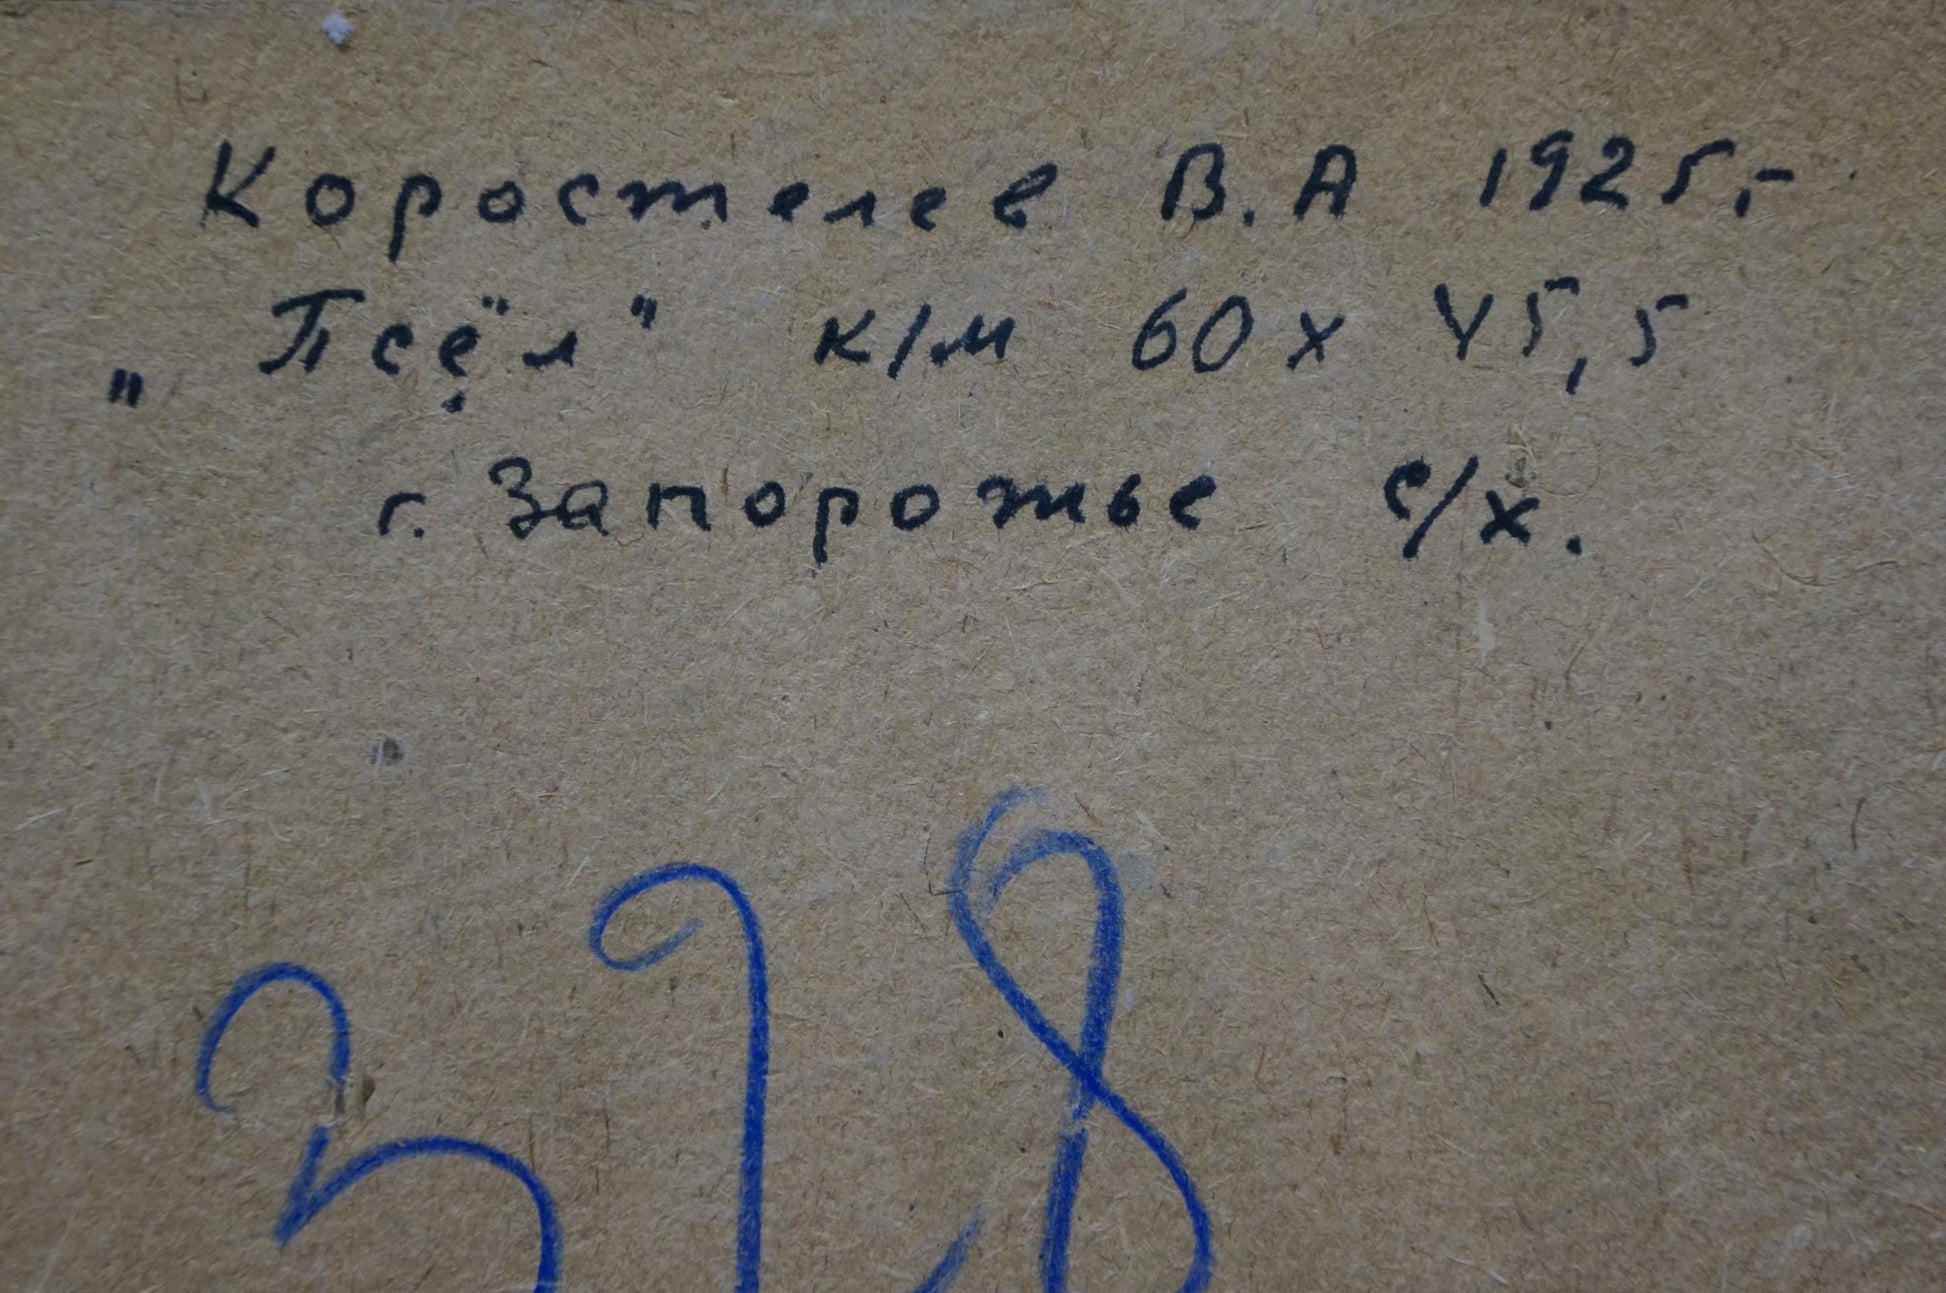 Коростелев В.А 1925г
„Псёл" к/м 60 х 45,5
г. Запорожье с/х.
328